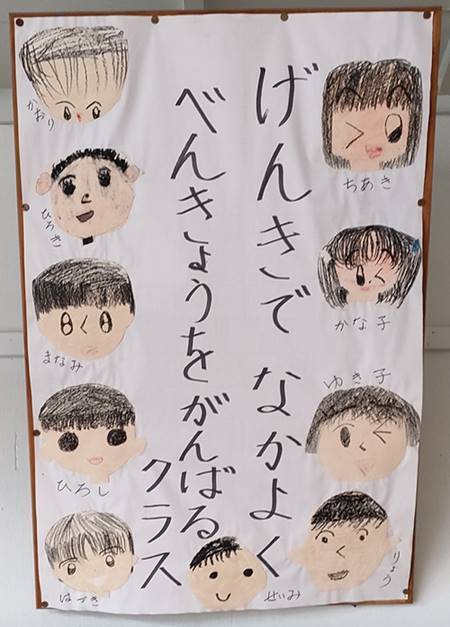 げんきで なかよく
べんきょうを がんばる
クラス
かおり
ひろき
まなみ
ひろし
はづき
ちあき
かな子
ゆき子
りょう
せいみ